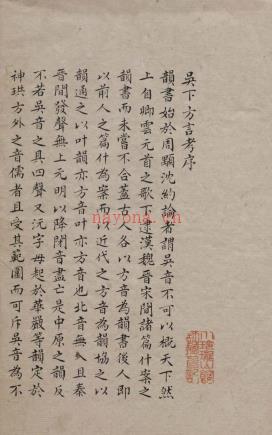 吳下方言考序
韻書始於周顒沈約論者謂吳音不可以概天下然
上自卿雲元首之歌下逮漢魏晉宋間諸篇什案之
韻書而未嘗不合蓋古人各以方音為韻書後人即
以前人之篇什為案而以近代之方音為韻協之以
韻通之以叶韻亦方音叶亦方音也北音無入且秦
晉間發聲無上元明以降閉音盡亡是中原之韻反
不若吳音之具四聲又況字母起於華嚴等韻定於
神珙方外之音儒者且受其範圍而可斥吳音為不
nayona.cn